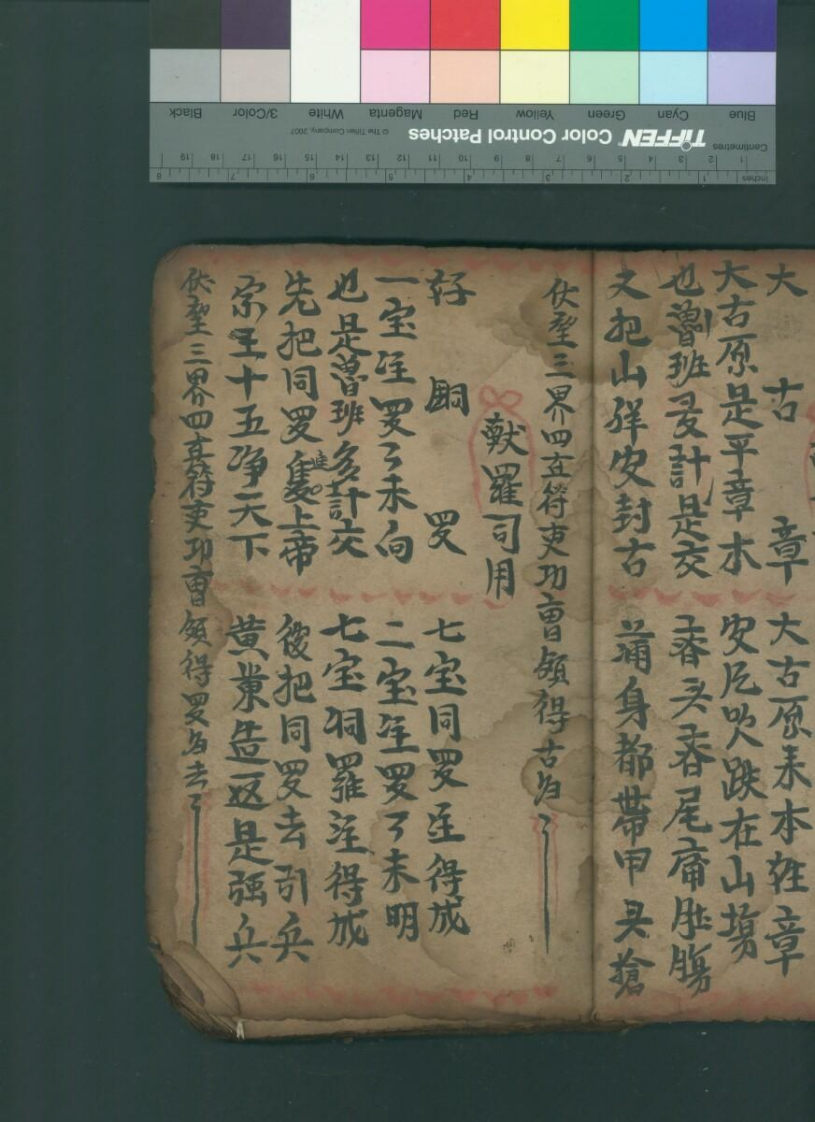 大古章 大古原来本姓章
大古原是平章木 安尼吹跌在山塲
也魯班計是交 舂头舂尾肚膓
又把山羊安封古 蒲身都帶甲头搶
伏望三界四直符吏功曹領得古为了
獻羅司用
好銅罗 七宝同罗至得成
一宝注罗了未向 二宝注罗了未明
也是魯班多計交 七宝洞羅注得成
先把同罗進上帝 後把同罗去引兵
宗王十五净天下 黄巢造返是强兵
伏望三界四直符吏功曹領得罗为去了
Blue
Cyan
Green
Yellow
Red
Magenta
White
3/Color
Black
TIFFEN Color Control Patches
© The Tiffen Company, 2007
Centimetres
1 2 3 4 5 6 7 8 9 10 11 12 13 14 15 16 17 18 19
Inches
1 2 3 4 5 6 7 8